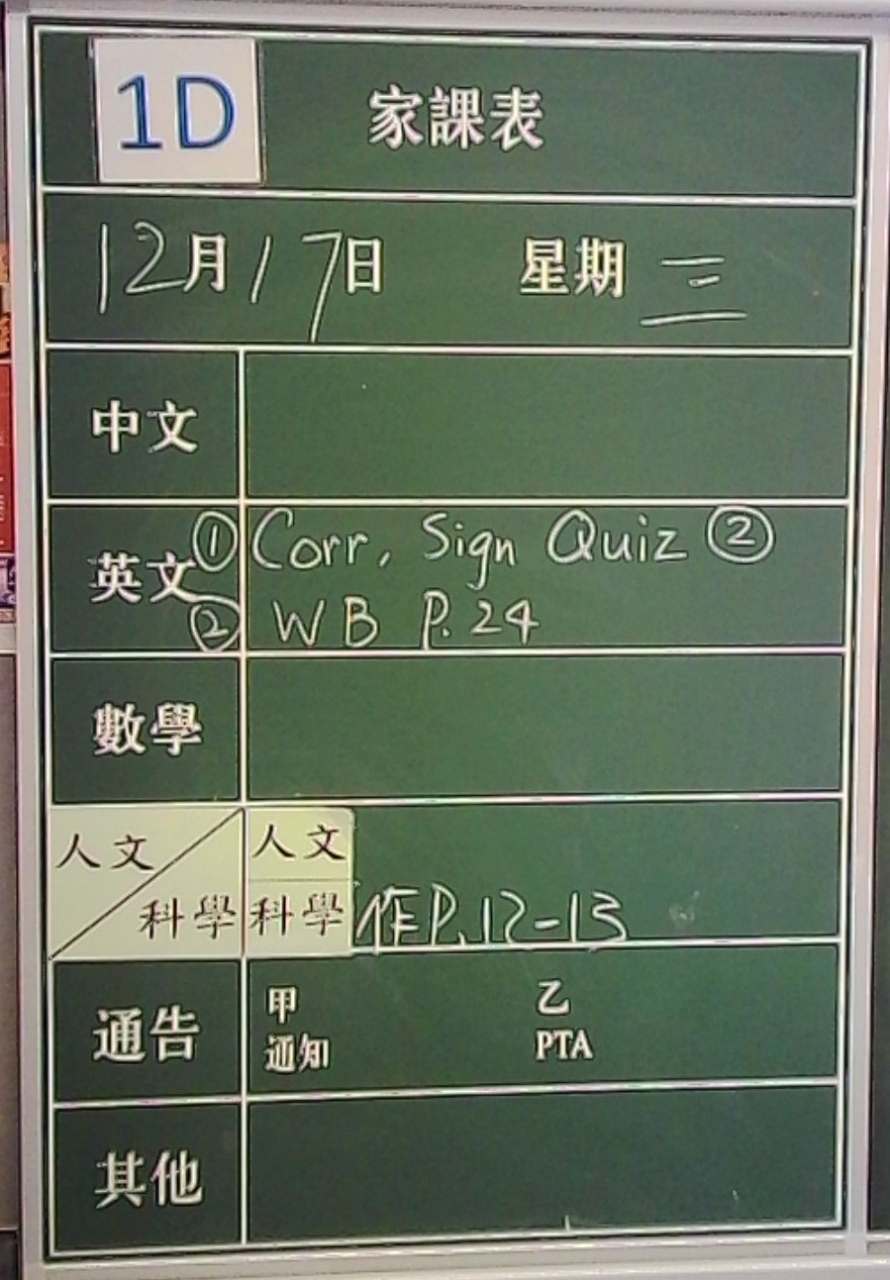 1D 家課表
12月17日 星期三
中文
英文 ① Corr, Sign Quiz ②
② WB P.24
數學
人文 人文
科學 科學 作P.12-13
通告 甲 乙
通知 PTA
其他